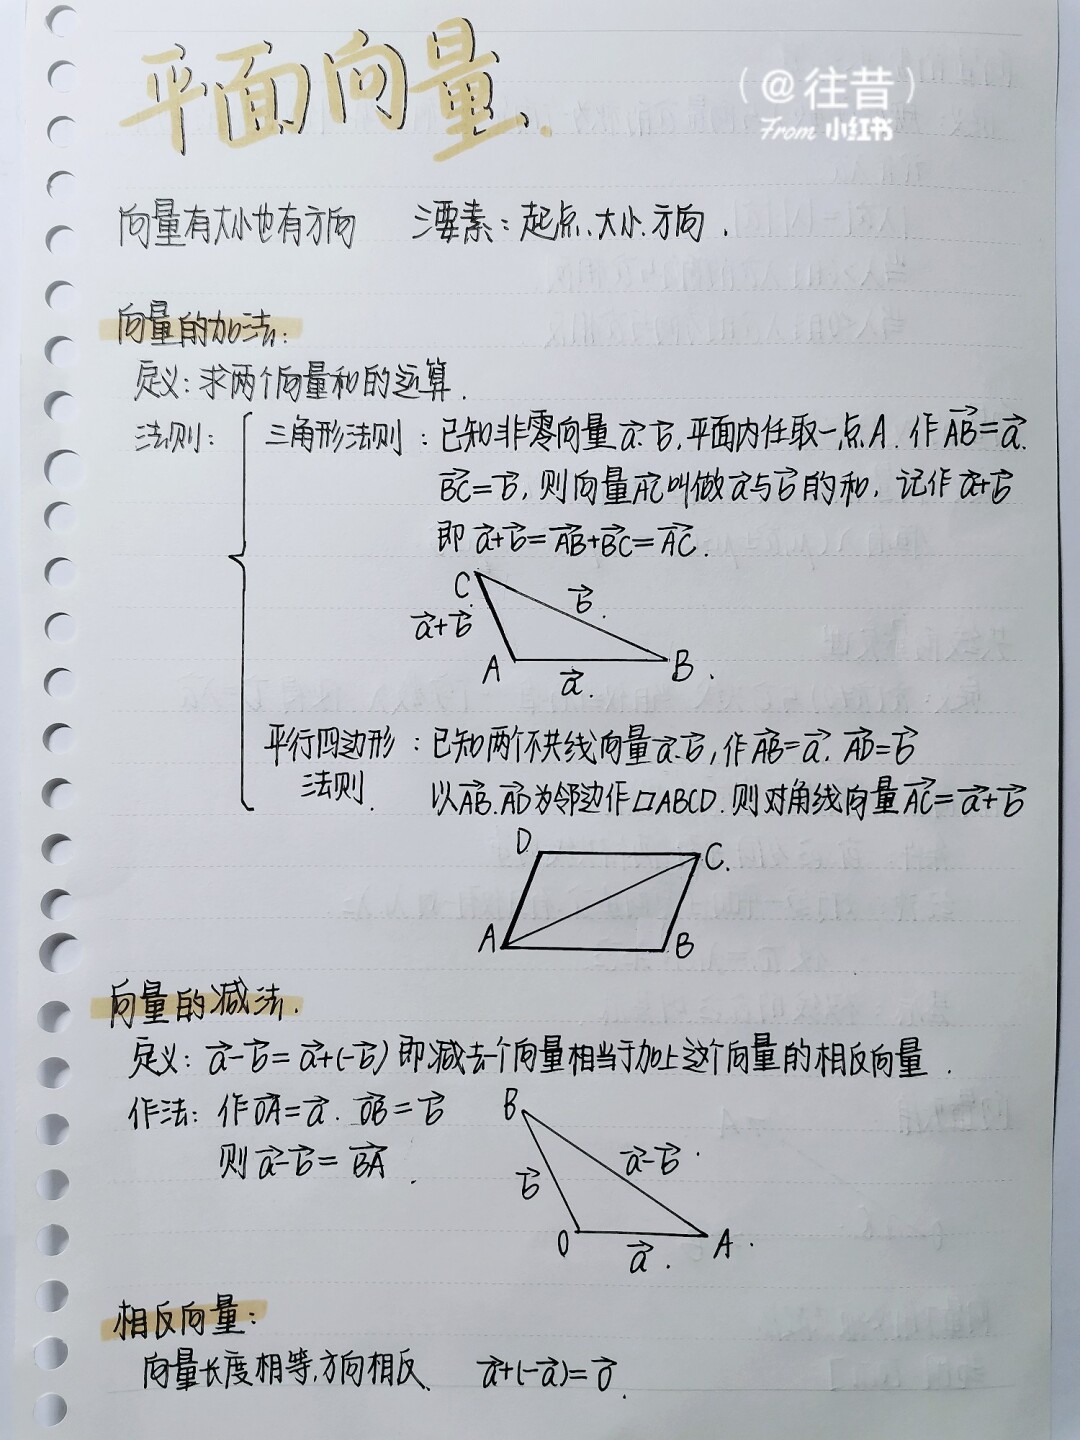 平面向量.
(@往昔)
From 小红书
向量有大小也有方向 要素：起点、大小.方向.
向量的加法:
定义: 求两个向量和的运算.
法则: 三角形法则：已知非零向量a⃗.b⃗,平面内任取一点A.作AB⃗=a⃗.
BC⃗=b⃗, 则向量AC⃗叫做a⃗与b⃗的和, 记作a⃗+b⃗
即a⃗+b⃗=AB⃗+BC⃗=AC⃗.
C
b⃗.
a⃗+b⃗
A B.
a⃗.
平行四边形：已知两个不共线向量a⃗.b⃗,作AB⃗=a⃗. AD⃗=b⃗
法则. 以AB⃗.AD⃗为邻边作▱ABCD.则对角线向量AC⃗=a⃗+b⃗
D C.
A B
向量的减法.
定义: a⃗-b⃗=a⃗+(-b⃗) 即减去个向量相当于加上这个向量的相反向量.
作法: 作OA⃗=a⃗. OB⃗=b⃗
则a⃗-b⃗=BA⃗.
B
a⃗-b⃗.
b⃗
O A.
a⃗.
相反向量:
向量长度相等,方向相反. a⃗+(-a⃗)=0⃗.